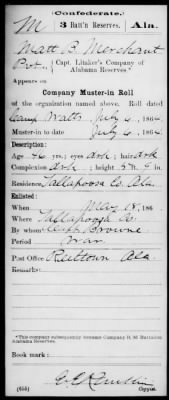 (Confederate.)
M 3 Batt'n Reserves, Ala.
Matt B. Merchant
Pvt., Capt. Litaker's Company of Alabama Reserves.*
Appears on
Company Muster-in Roll
of the organization named above. Roll dated
Camp Watts July 6, 1864
Muster-in to date July 6, 1864
Description:
Age 46 yrs.; eyes drk; hair drk
Complexion drk; height 5 ft. 9 in.
Residence, Tallapoosa Co. Ala.
Enlisted:
When May 18, 186
Where Tallapoosa Co
By whom Browne
Period War
Post Office Reeltown Ala
Remarks:
*This company subsequently became Company
Alabama Reserves.
Book mark:
(455)
Copyist.